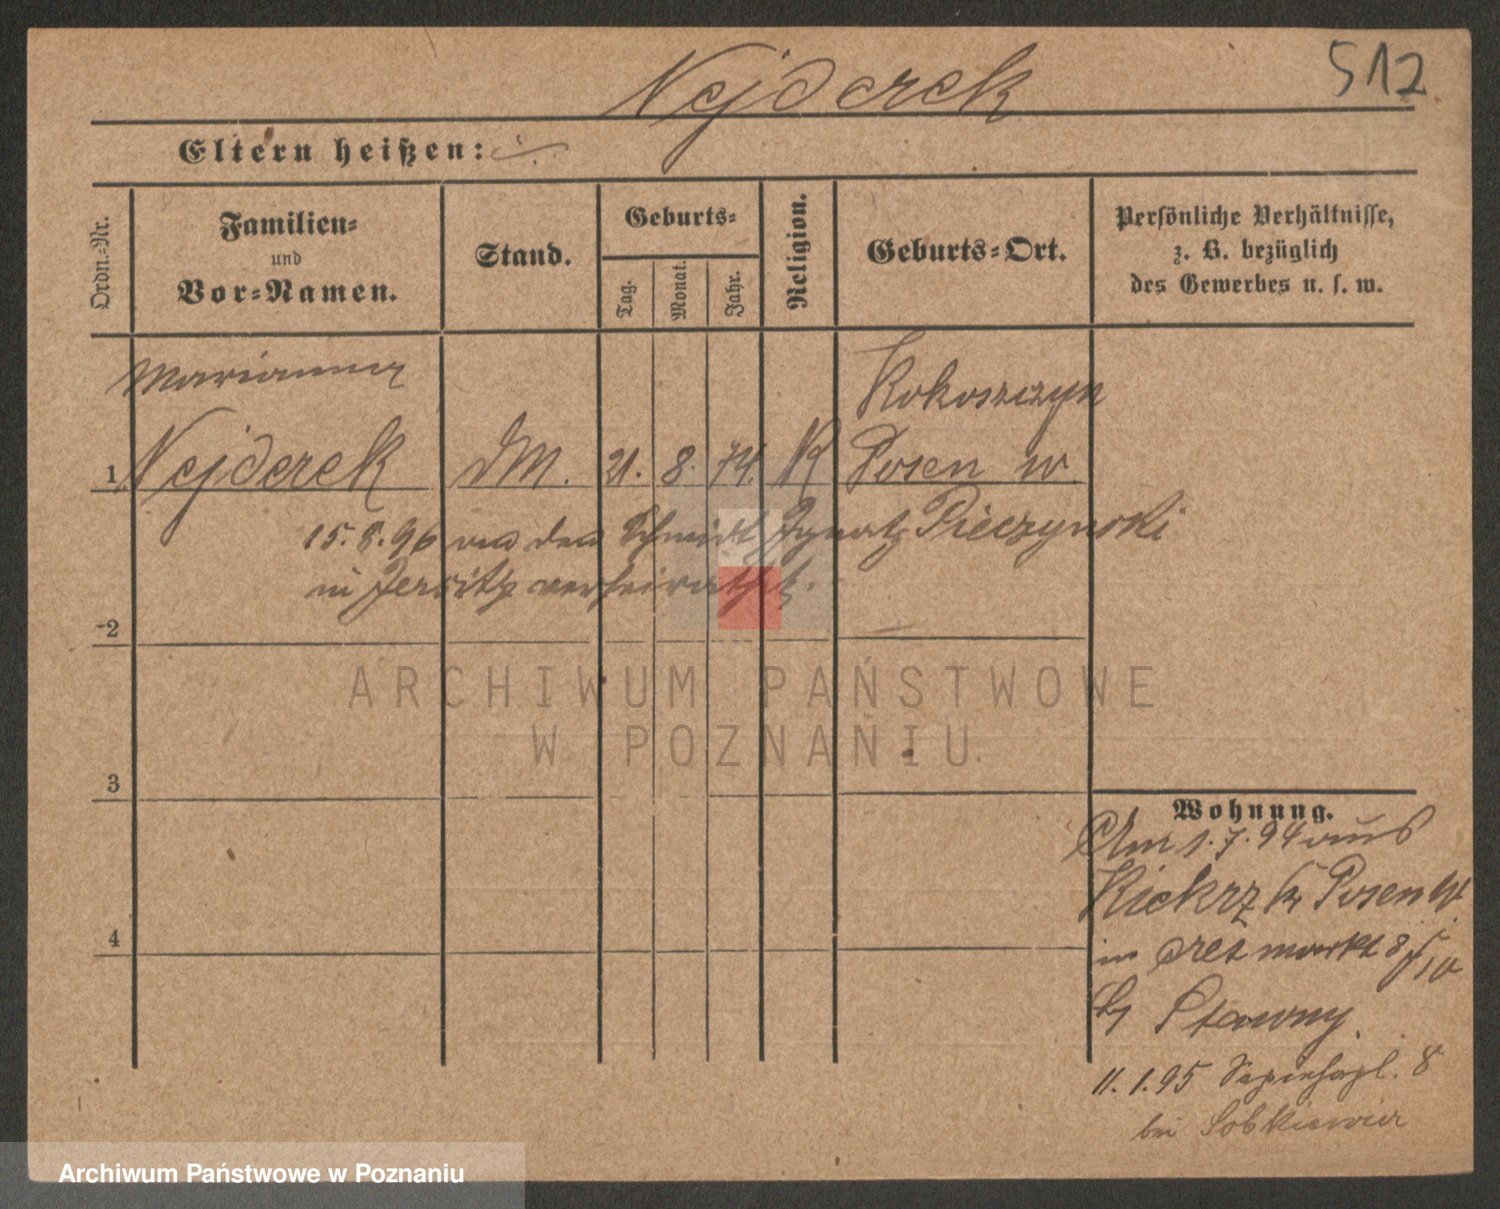 512
Nejderek
Eltern heißen:
Ordn.-Nr.
Familien-
und
Vor-Namen.
Stand.
Geburts-
Tag.
Monat.
Jahr.
Religion.
Geburts-Ort.
Persönliche Verhältnisse,
z. B. bezüglich
des Gewerbes u. s. w.
Marianna
Kokoszczyn
1 Nejderek DM. 21. 8. 74. K Posen W.
15.8.96 an den Schmidt Ignatz Pieczynski
in Jersitz verheirathet.
2
3
4
Wohnung.
Am 1.7.94 aus
Kiekrz Kr Posen W
in markt 8
Stawny
11.1.95 Sapiehapl. 8
bei
ARCHIWUM PAŃSTWOWE
W POZNANIU
Archiwum Państwowe w Poznaniu